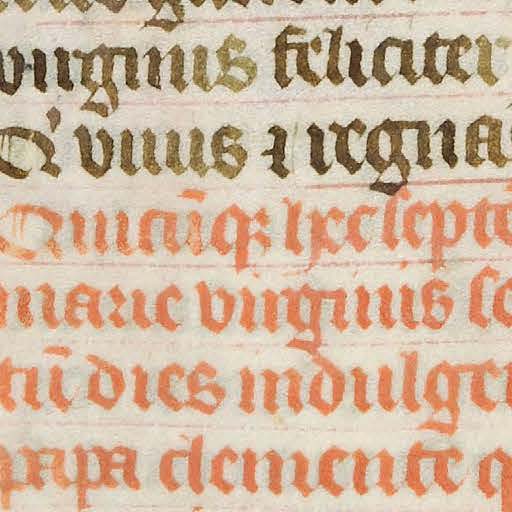 virginis feliciter
Q' vivis ⁊ regna
Quicūq; hec septē
marie virginis
dies indulge
papa clemente q